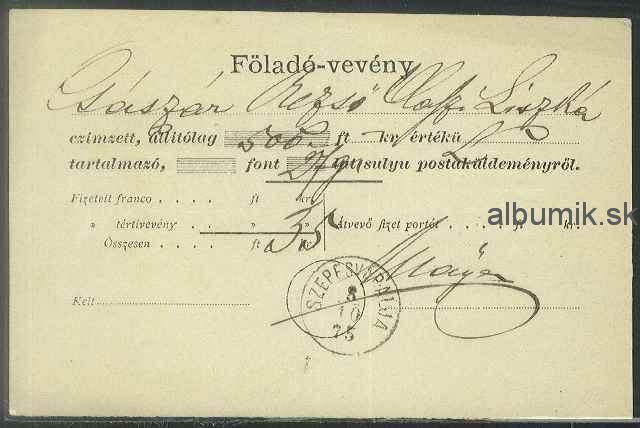 Föladó-vevény
Császár Rezső Olasz Liszka
czimzett, állitólag 500 ft kr értékü
tartalmazó, font súlyu postaküldeményről.
Fizetett franco . . . . ft kr.
" tértivevény . . " 35 " átvevő fizet portót . . . . ft kr.
Összesen . . . . ft kr.
albumik.sk
Mayer
Kelt
SZEPESVÁRALJA
8
10
75